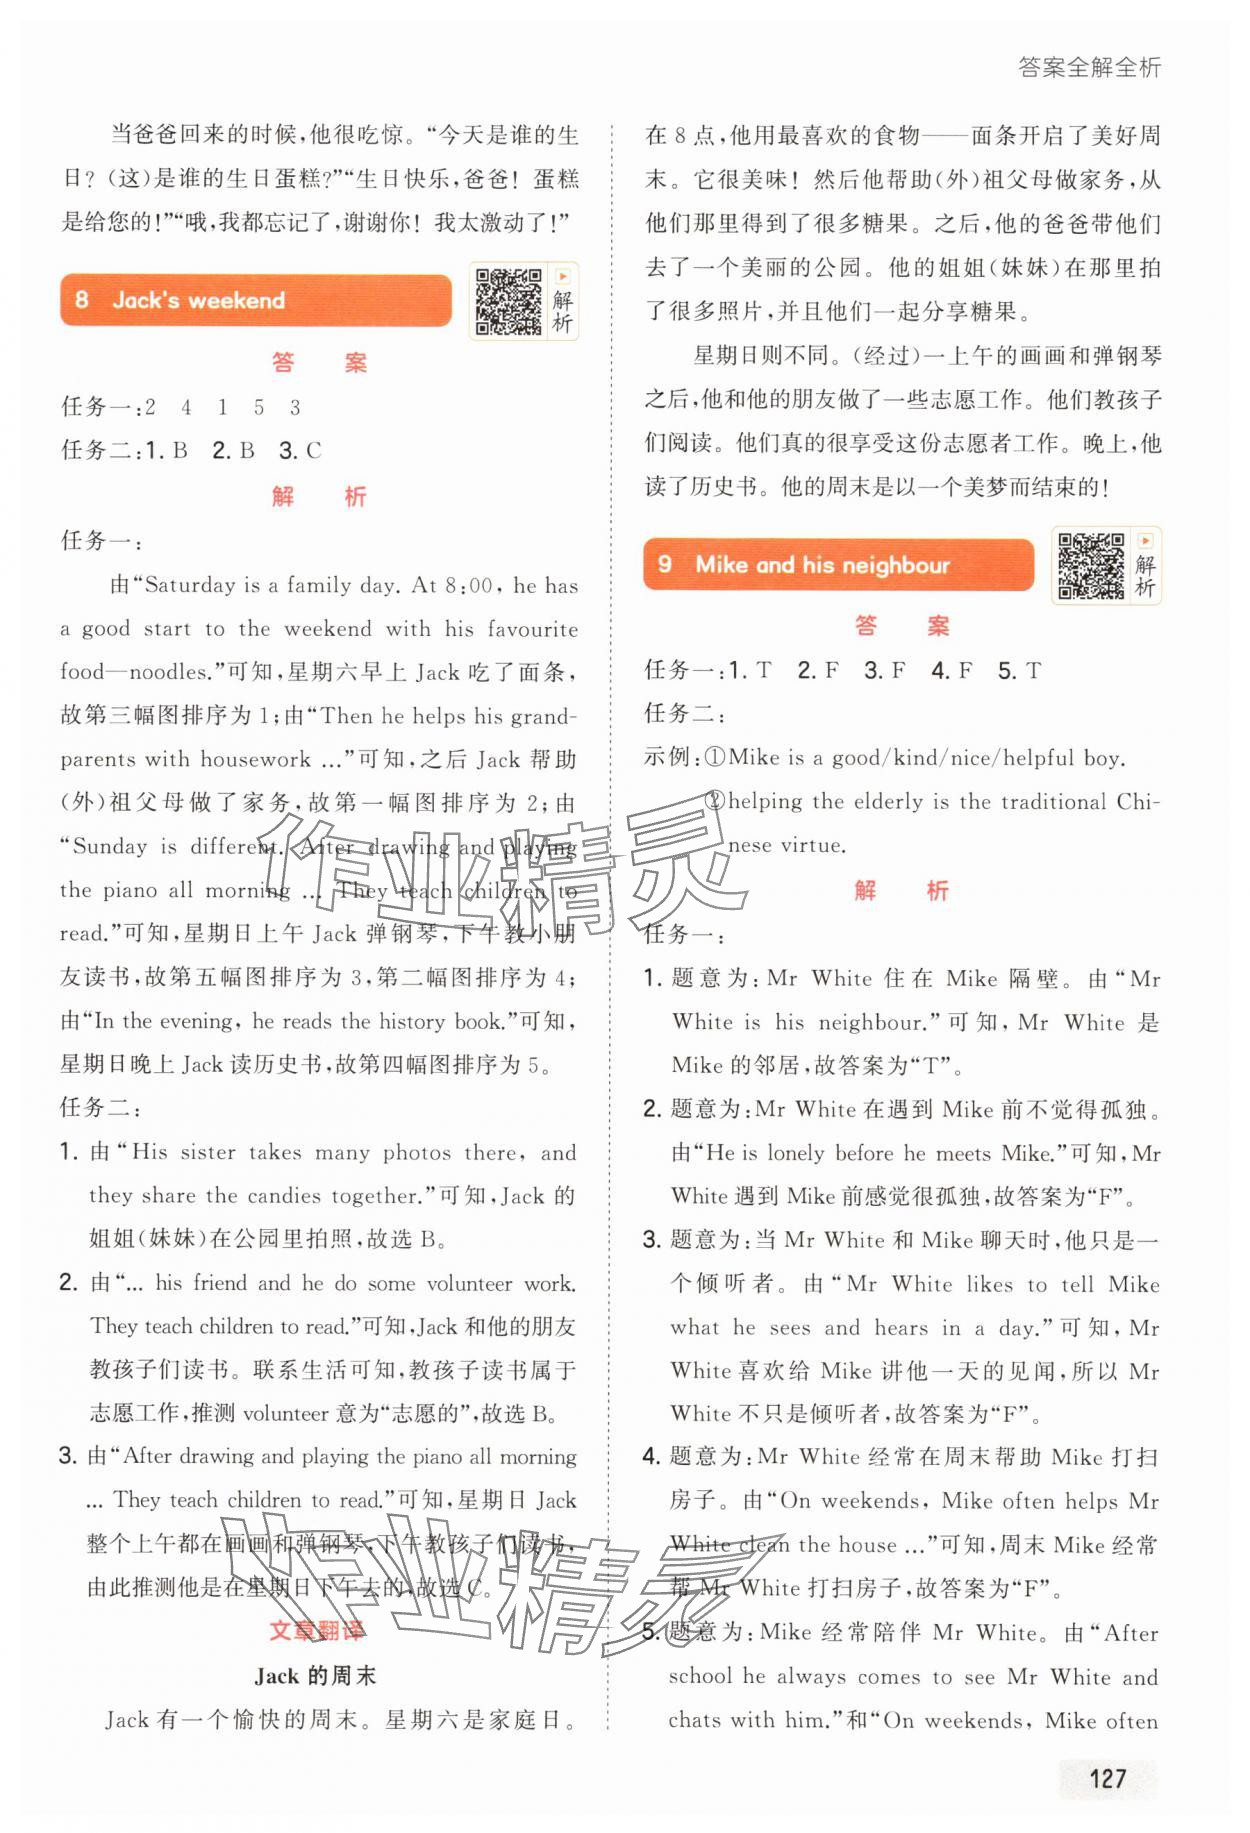 答案全解全析
当爸爸回来的时候，他很吃惊。“今天是谁的生
日？(这)是谁的生日蛋糕？”“生日快乐，爸爸！蛋糕
是给您的！”“哦，我都忘记了，谢谢你！我太激动了！”
8 Jack's weekend
解析
答 案
任务一:2 4 1 5 3
任务二:1. B 2. B 3. C
解 析
任务一:
由“Saturday is a family day. At 8:00, he has
a good start to the weekend with his favourite
food—noodles.”可知，星期六早上 Jack 吃了面条，
故第三幅图排序为 1；由“Then he helps his grand-
parents with housework ...”可知，之后 Jack 帮助
(外)祖父母做了家务，故第一幅图排序为 2；由
“Sunday is different. After drawing and playing
the piano all morning ... They teach children to
read.”可知，星期日上午 Jack 弹钢琴，下午教小朋
友读书，故第五幅图排序为 3，第二幅图排序为 4；
由“In the evening, he reads the history book.”可知，
星期日晚上 Jack 读历史书，故第四幅图排序为 5。
任务二:
1. 由“His sister takes many photos there, and
they share the candies together.”可知，Jack 的
姐姐(妹妹)在公园里拍照，故选 B。
2. 由“... his friend and he do some volunteer work.
They teach children to read.”可知，Jack 和他的朋友
教孩子们读书。联系生活可知，教孩子读书属于
志愿工作，推测 volunteer 意为“志愿的”，故选 B。
3. 由“After drawing and playing the piano all morning
... They teach children to read.”可知，星期日 Jack
整个上午都在画画和弹钢琴，下午教孩子们读书，
由此推测他是在星期日下午去的，故选 C。
文章翻译
Jack 的周末
Jack 有一个愉快的周末。星期六是家庭日。
在 8 点，他用最喜欢的食物——面条开启了美好周
末。它很美味！然后他帮助(外)祖父母做家务，从
他们那里得到了很多糖果。之后，他的爸爸带他们
去了一个美丽的公园。他的姐姐(妹妹)在那里拍
了很多照片，并且他们一起分享糖果。
星期日则不同。(经过)一上午的画画和弹钢琴
之后，他和他的朋友做了一些志愿工作。他们教孩子
们阅读。他们真的很享受这份志愿者工作。晚上，他
读了历史书。他的周末是以一个美梦而结束的！
9 Mike and his neighbour
解析
答 案
任务一:1. T 2. F 3. F 4. F 5. T
任务二:
示例:①Mike is a good/kind/nice/helpful boy.
②helping the elderly is the traditional Chi-
nese virtue.
解 析
任务一:
1. 题意为：Mr White 住在 Mike 隔壁。由“Mr
White is his neighbour.”可知，Mr White 是
Mike 的邻居，故答案为“T”。
2. 题意为：Mr White 在遇到 Mike 前不觉得孤独。
由“He is lonely before he meets Mike.”可知，Mr
White 遇到 Mike 前感觉很孤独，故答案为“F”。
3. 题意为：当 Mr White 和 Mike 聊天时，他只是一
个倾听者。由“Mr White likes to tell Mike
what he sees and hears in a day.”可知，Mr
White 喜欢给 Mike 讲他一天的见闻，所以 Mr
White 不只是倾听者，故答案为“F”。
4. 题意为：Mr White 经常在周末帮助 Mike 打扫
房子。由“On weekends, Mike often helps Mr
White clean the house ...”可知，周末 Mike 经常
帮 Mr White 打扫房子，故答案为“F”。
5. 题意为：Mike 经常陪伴 Mr White。由“After
school he always comes to see Mr White and
chats with him.”和“On weekends, Mike often
作业精灵
作业精灵
127